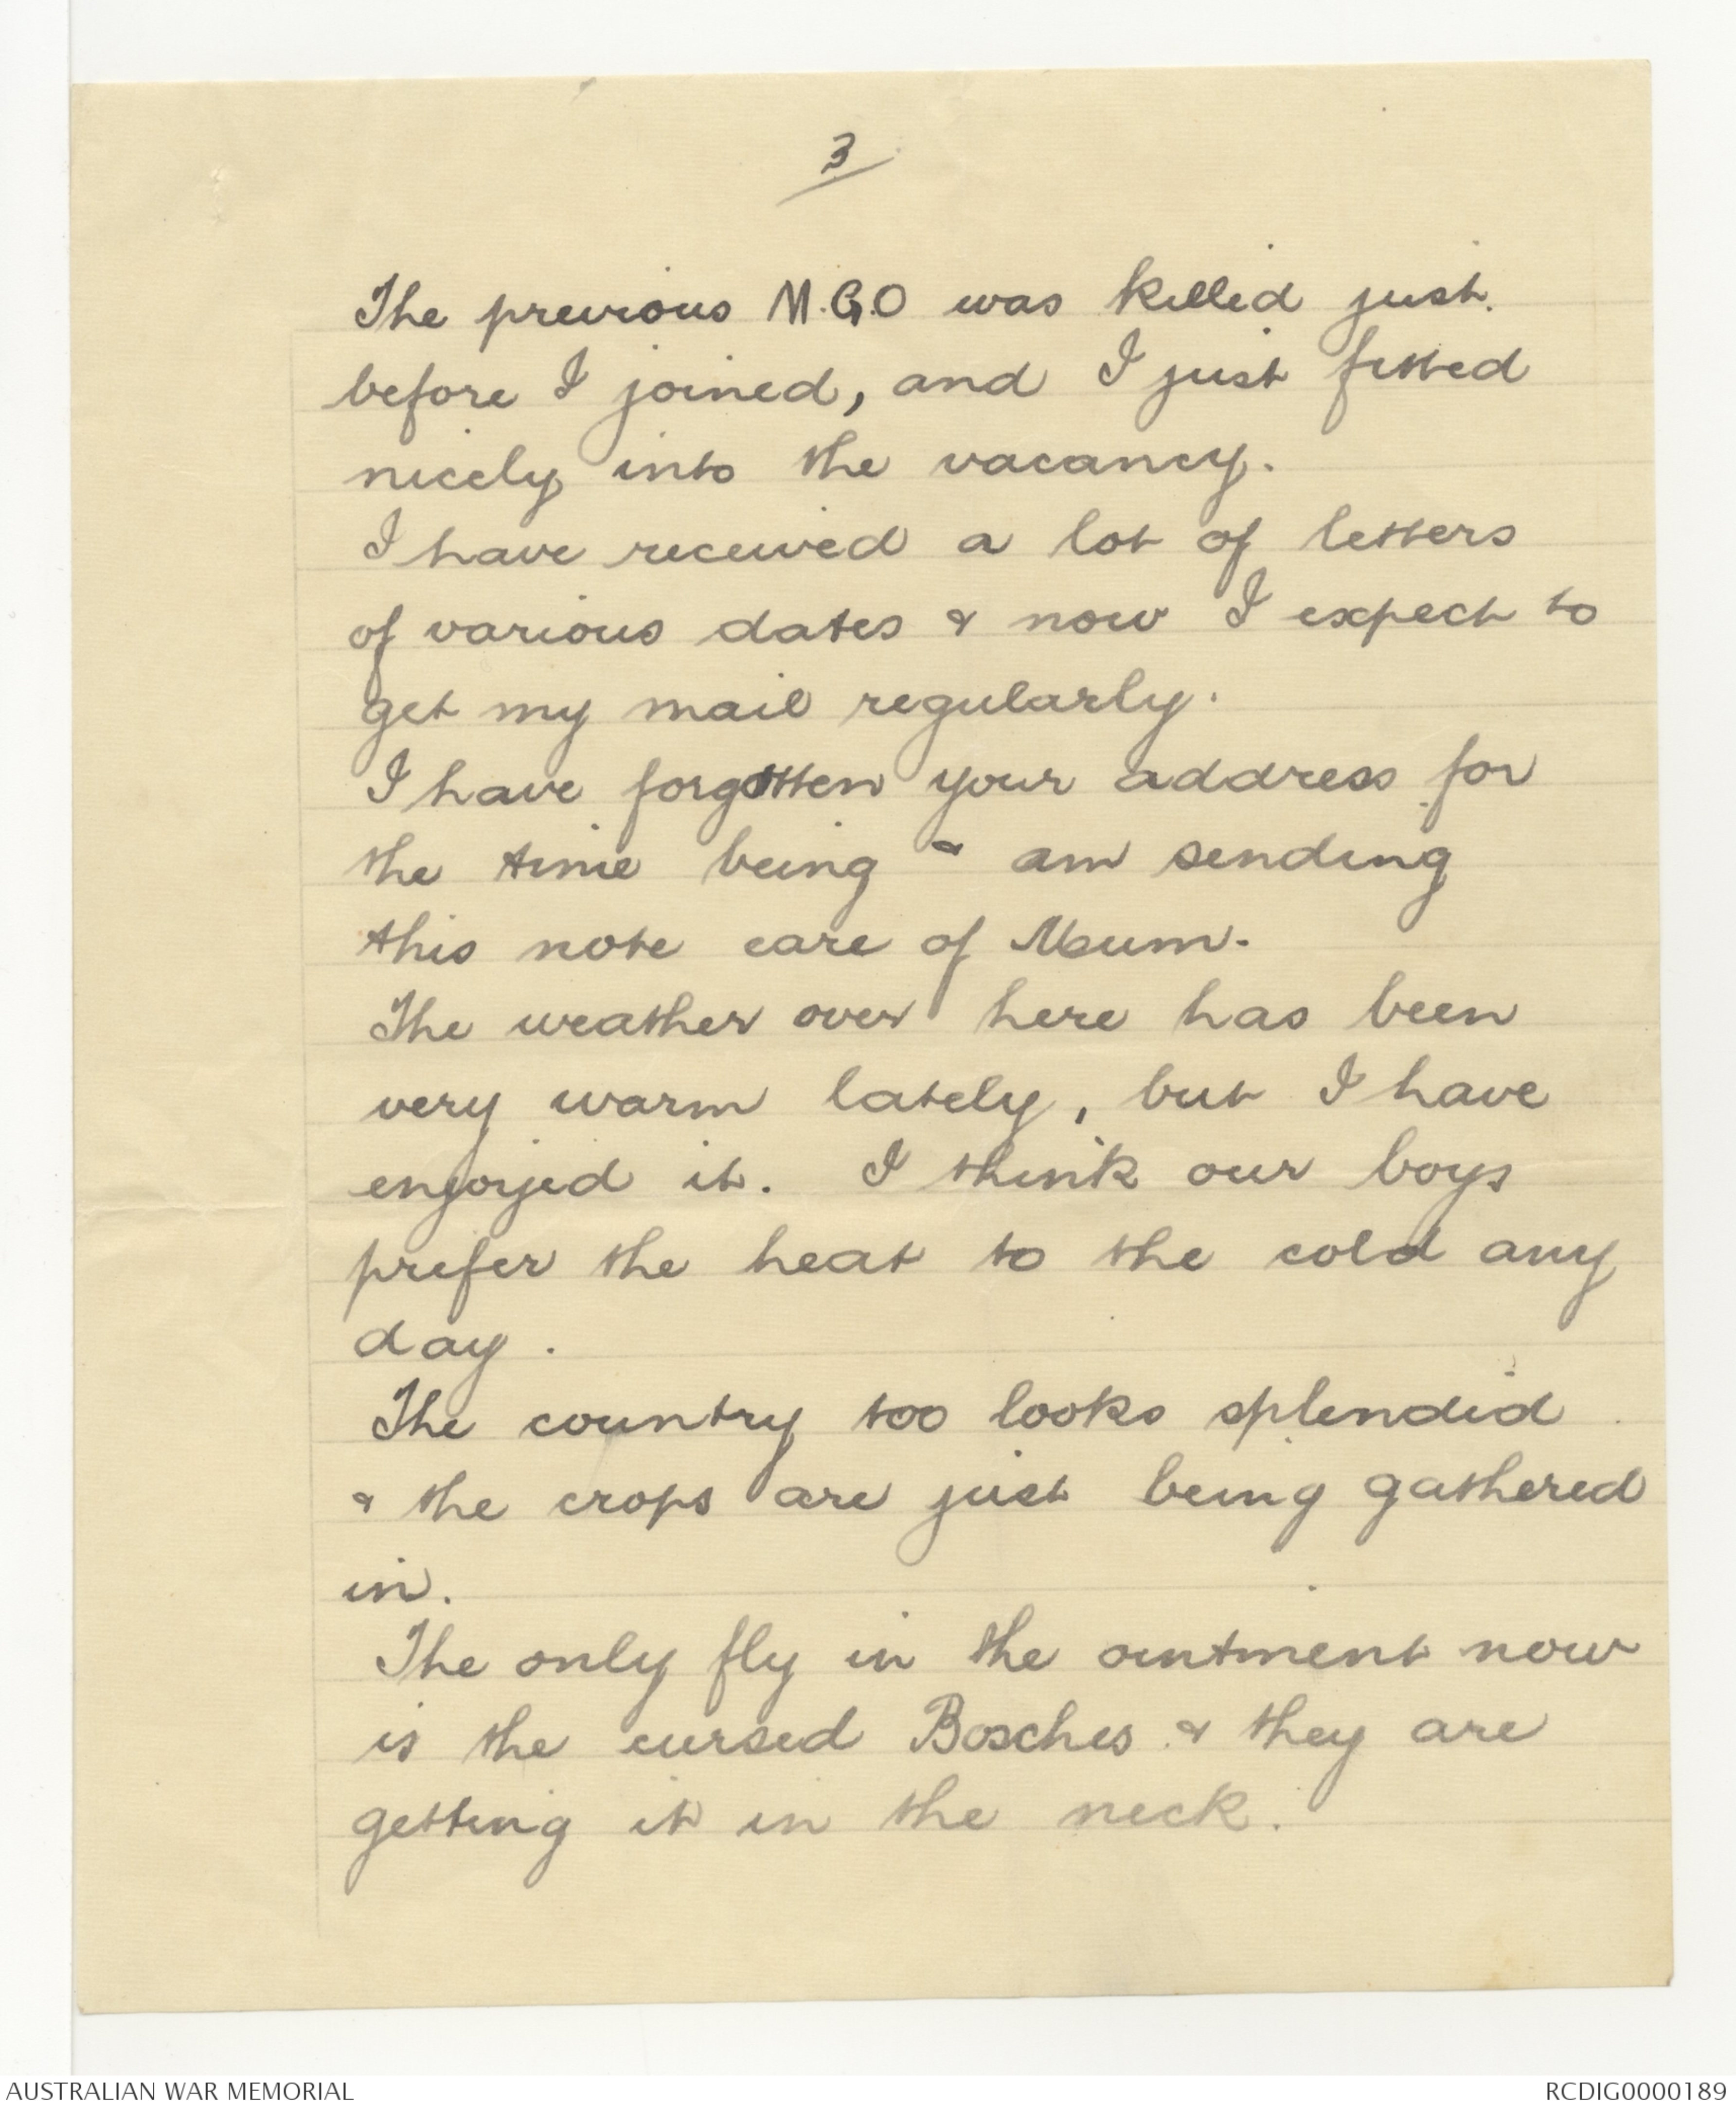 3
The previous M.G.O was killed just
before I joined, and I just fitted
nicely into the vacancy.
I have received a lot of letters
of various dates & now I expect to
get my mail regularly.
I have forgotten your address for
the time being & am sending
this note care of Mum.
The weather over here has been
very warm lately, but I have
enjoyed it. I think our boys
prefer the heat to the cold any
day.
The country too looks splendid
& the crops are just being gathered
in.
The only fly in the ointment now
is the cursed Bosches & they are
getting it in the neck.
AUSTRALIAN WAR MEMORIAL
RCDIG0000189